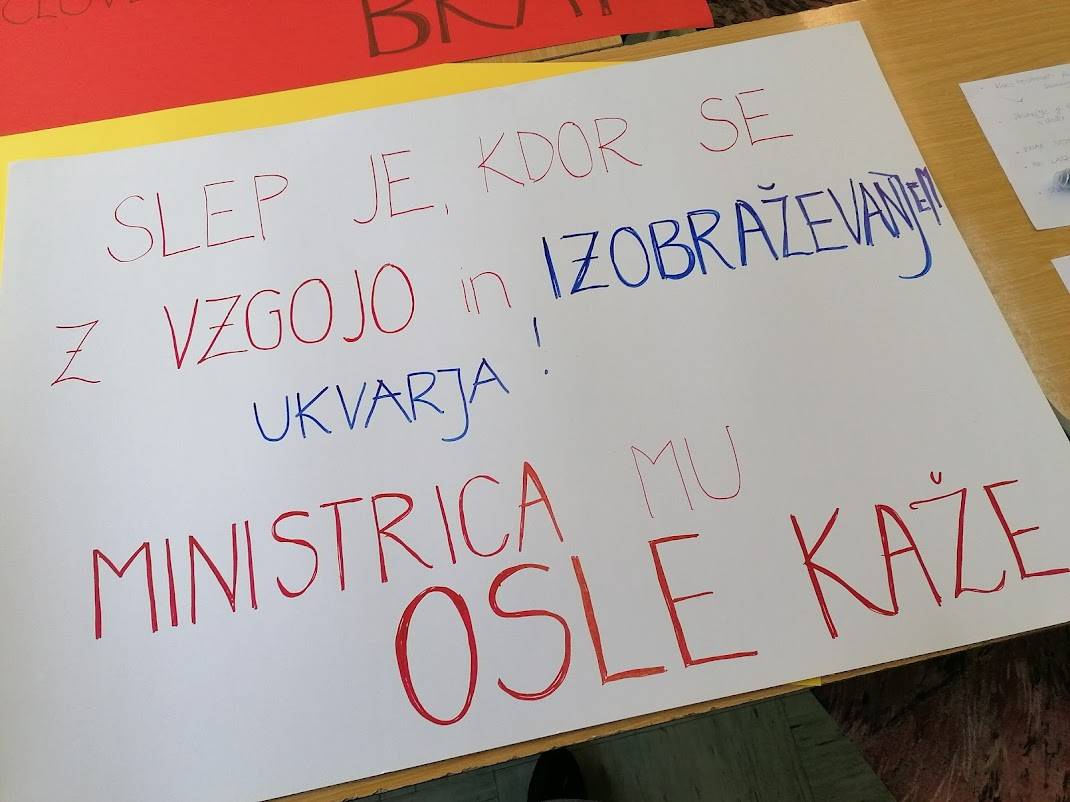 BRAT
SLEP JE, KDOR SE
Z VZGOJO in IZOBRAŽEVANJEM
UKVARJA!
MINISTRICA MU
OSLE KAŽE